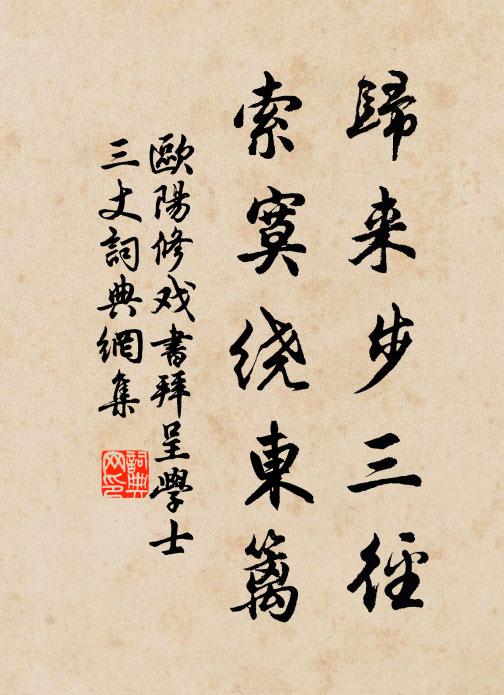 歸来步三徑
索寞绕東篱
歐陽修戏書拜呈學士
三丈詞典網集
詞典网印